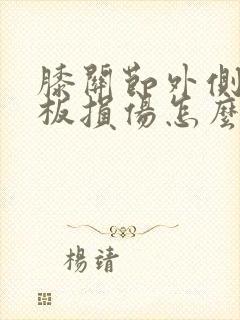 膝關節外側
板損傷怎麼
楊靖